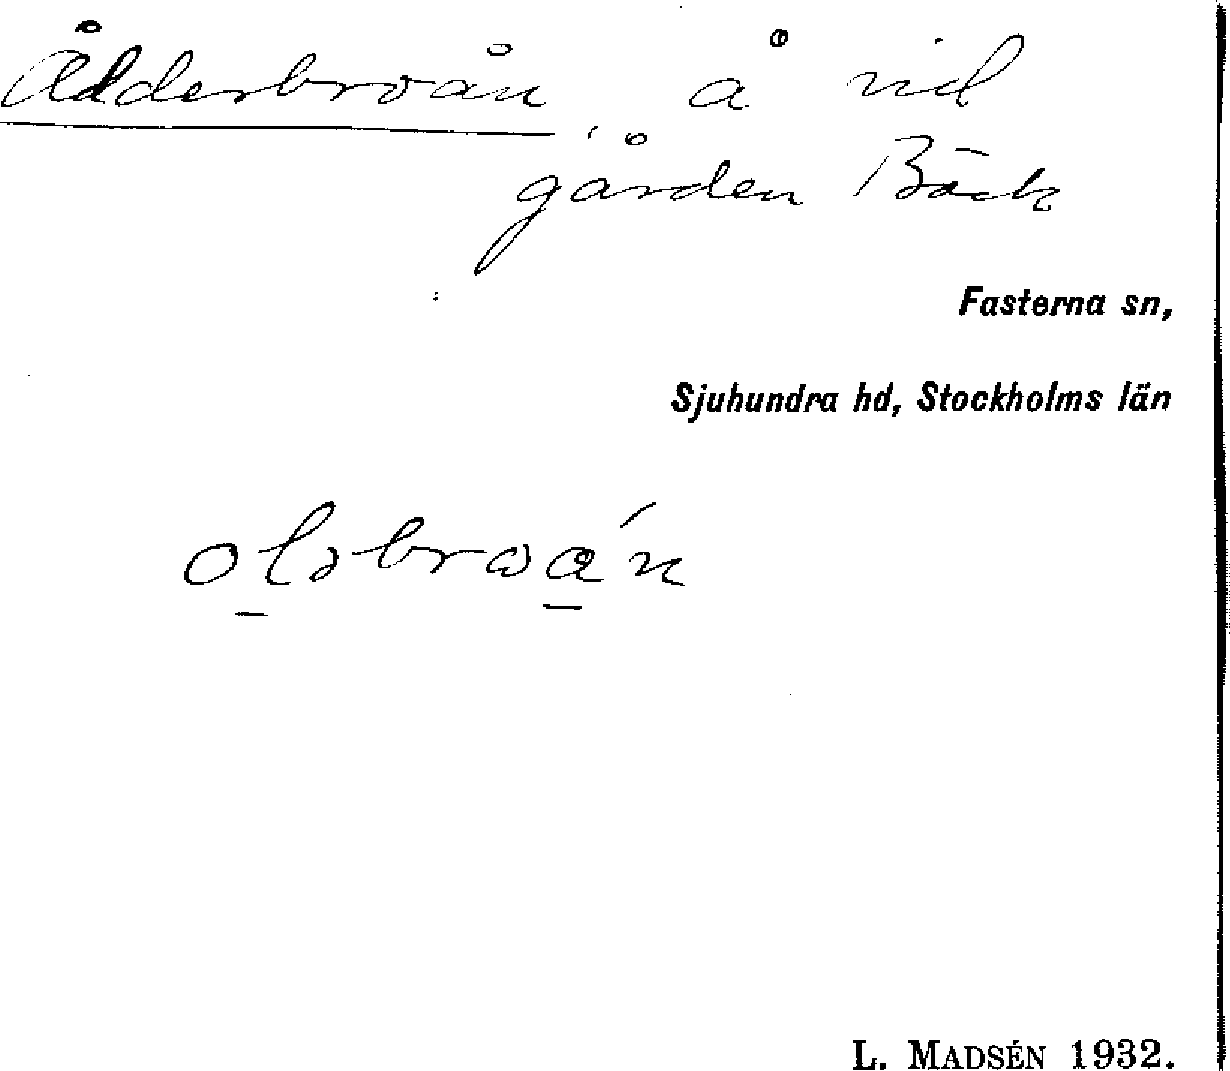 Ålderbroån, å vid
gården Bäck
Fasterna sn,
Sjuhundra hd, Stockholms län
L. MADSÉN 1932.